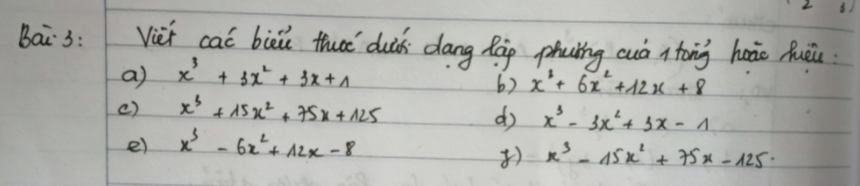 Bài 3: Viết các biểu thức dưới dạng lập phương của 1 tổng hoặc hiệu:
a) x³ + 3x² + 3x + 1 b) x³ + 6x² + 12x + 8
c) x³ + 15x² + 75x + 125 d) x³ - 3x² + 3x - 1
e) x³ - 6x² + 12x - 8 f) x³ - 15x² + 75x - 125.